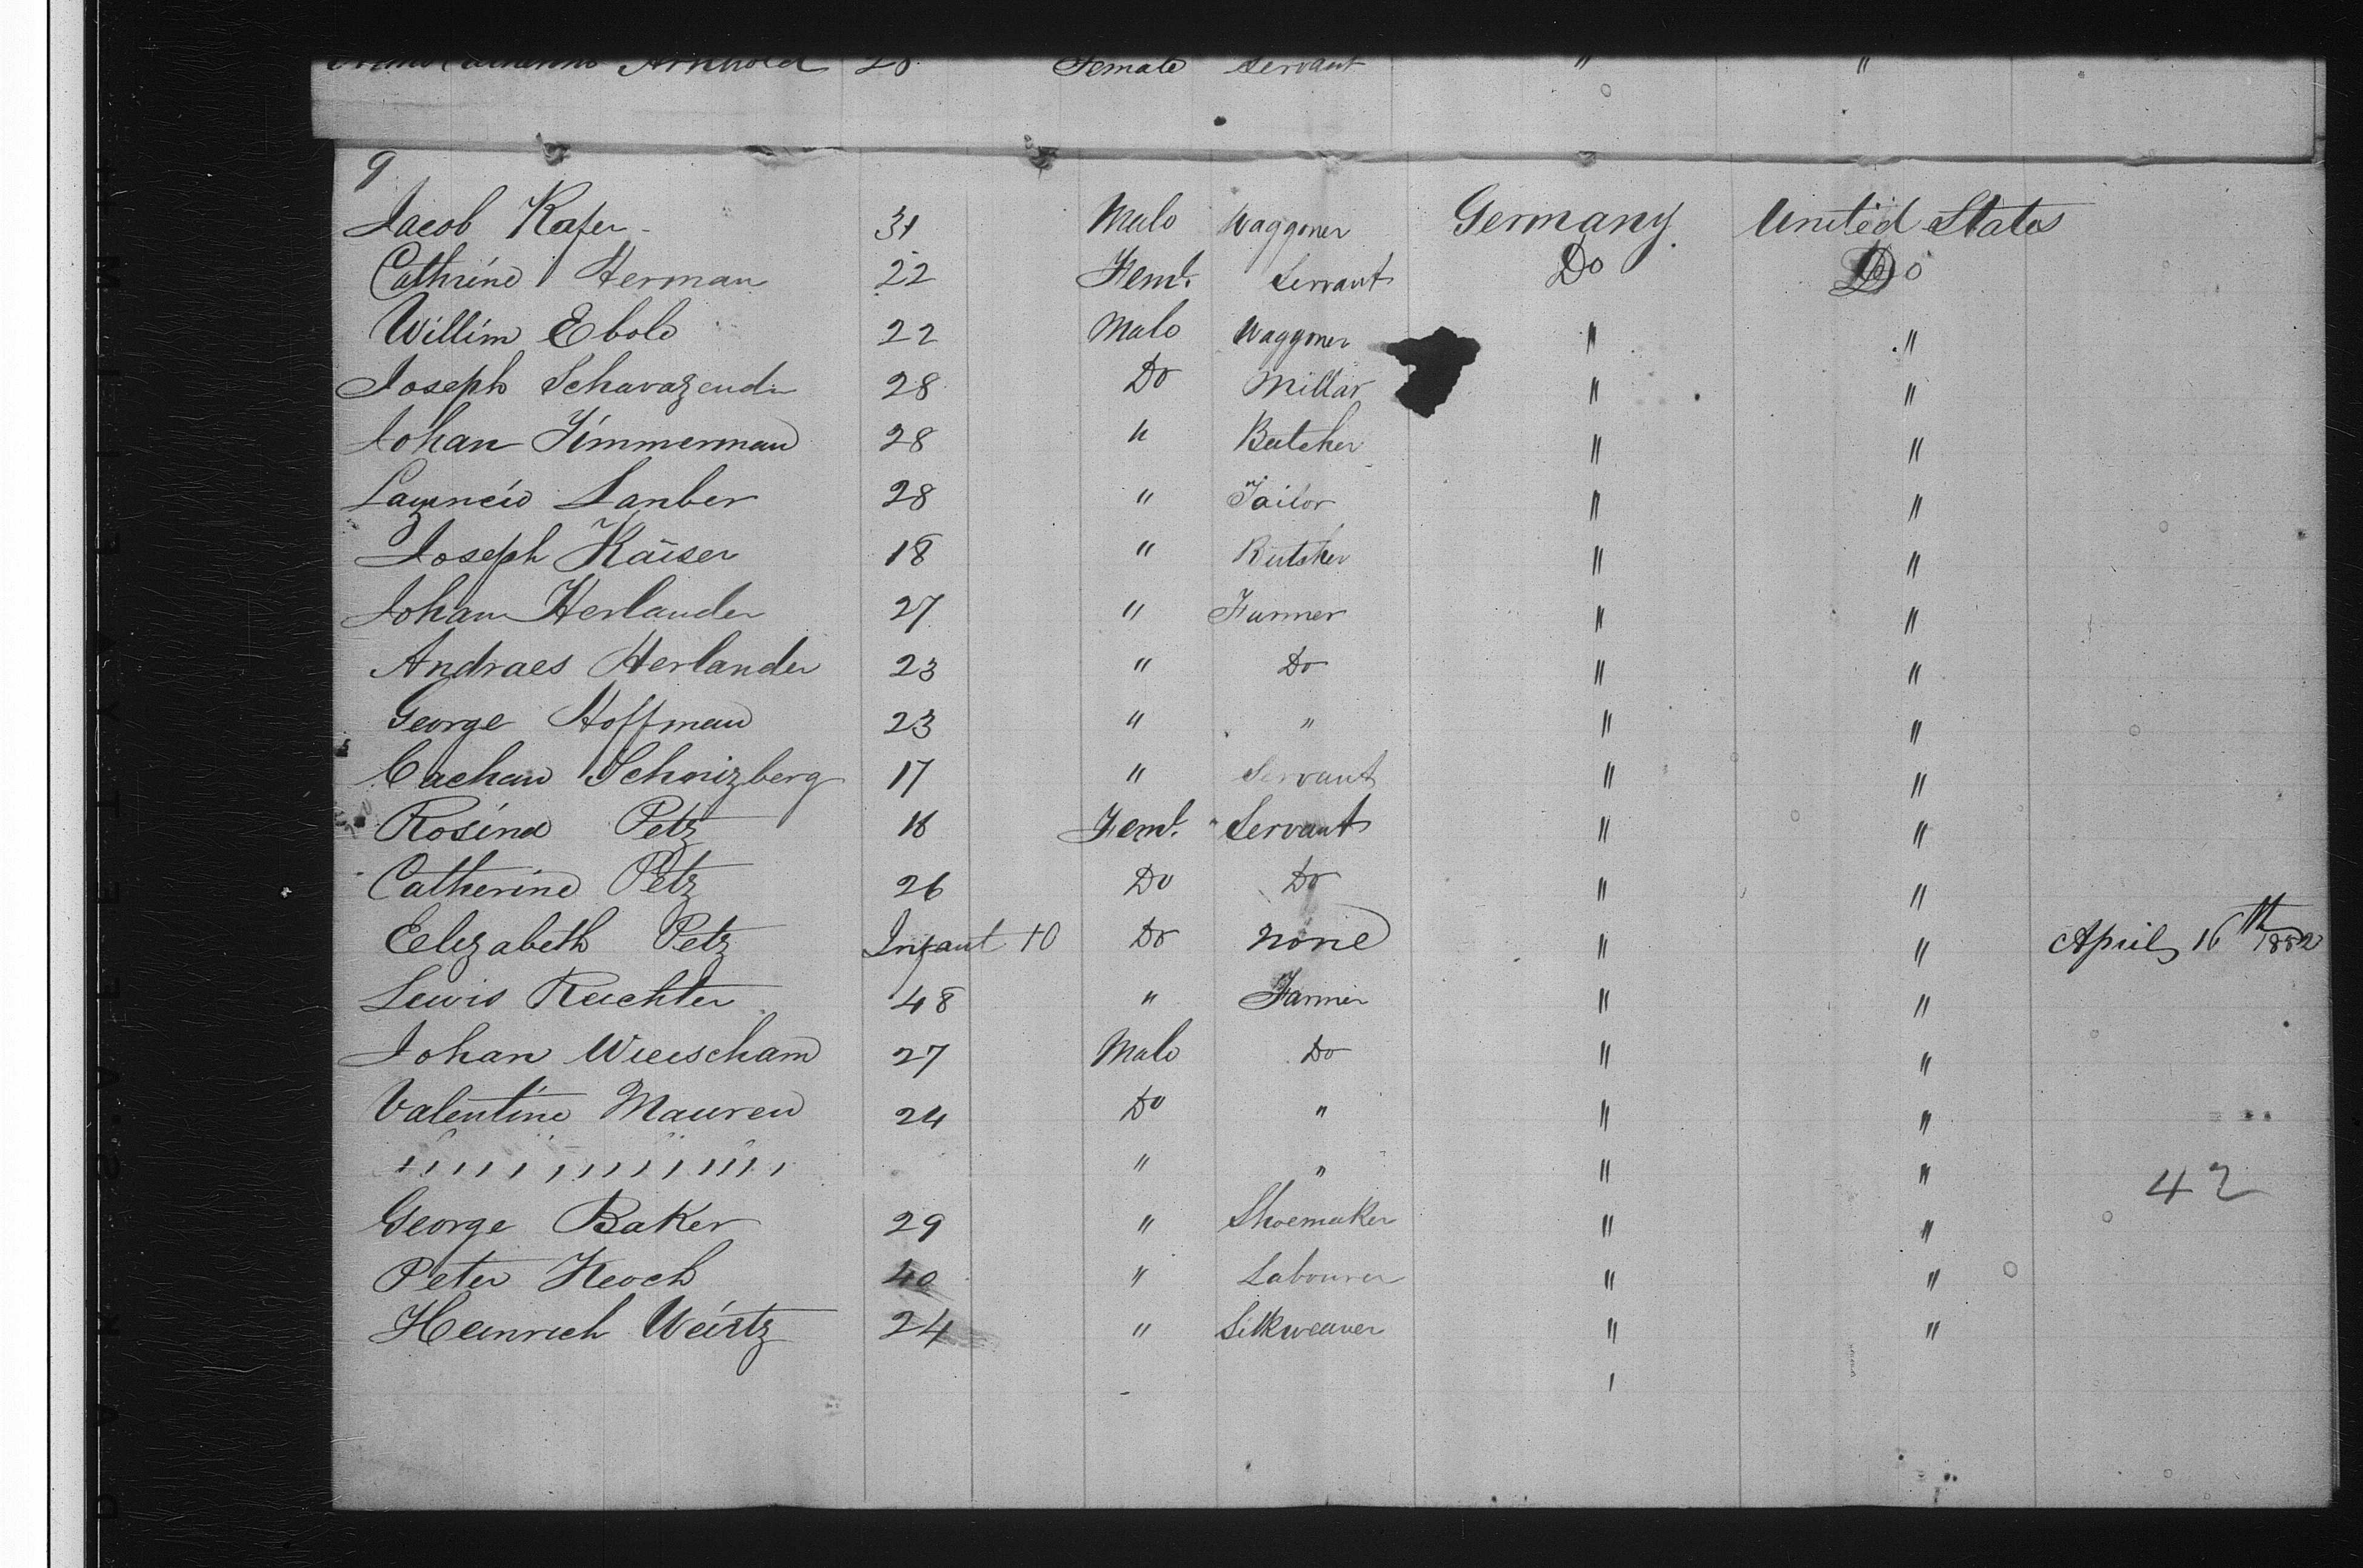 Arnhold 28 Female Servant " "
9
Jacob Kafer 31 Male Waggoner Germany United States
Cathrine Herman 22 Feml. Servant Do Do
Willim Ebole 22 Male Waggoner " "
Joseph 28 Do Millar " "
Johan Zimmerman 28 " Butcher " "
Lanber 28 " Tailor " "
Joseph Kaiser 18 " Butcher " "
Johan Herlander 27 " Farmer " "
Andraes Herlander 23 " Do " "
George Hoffman 23 " " " "
17 " Servant " "
Rosina Petz 18 Feml. Servant " "
Catherine Petz 26 Do Do " "
Eelizabeth Petz Infant 10 Do none " " April 16th 1882
Lewis Ruchter 48 " Farmer " "
Johan 27 Male Do " "
Valentine Mauren 24 Do " " "
" " " " " " " " " " "
42
George Baker 29 " Shoemaker " "
Peter Keoch 40 " Labourer " "
Heinrich Weirtz 24 " Silkweaver " "